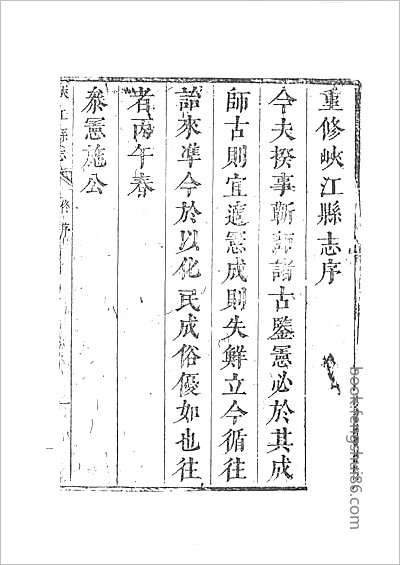 重修峽江縣志序
今夫揆事斬師諸古鑒憲必於其成
師古則宜遹憲成則失鮮立今循往
詒來準今於以化民成俗優如也往
者丙午春
叅憲施公
峽江縣志
序
book.fengshui86.com